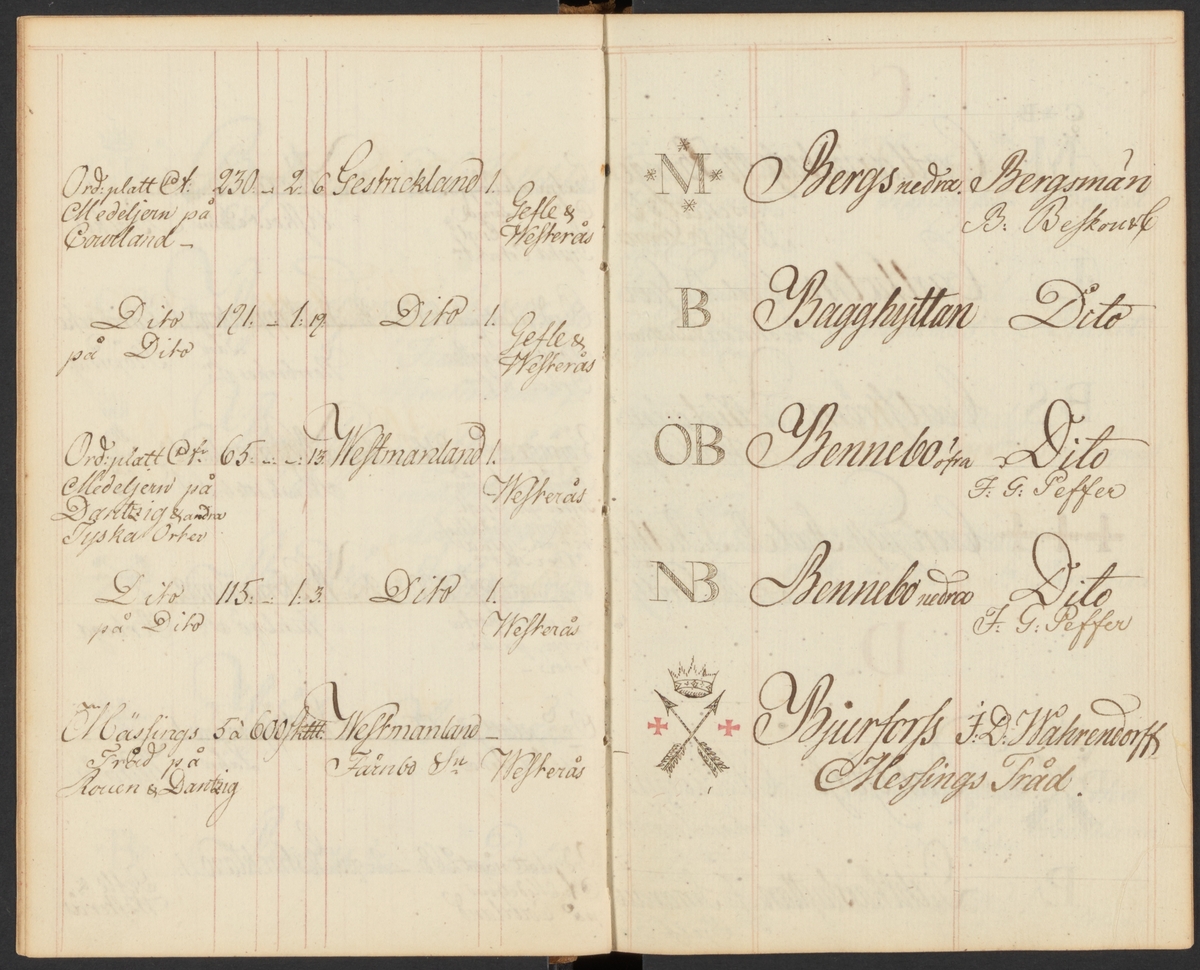 Ord: platt Ct: 230. - 2. 6. Gestrickland 1.
Medeljern på Gefle &
Courland - Westerås
Dito 191. - 1: 19. Dito 1.
på Dito Gefle &
Westerås
Ord: platt Ctr 65. - - 13. Westmanland 1.
Medeljern på Westerås
Dantzig & andra
Tyska Orter
Dito 115. - 1: 3. Dito 1.
på Dito Westerås
Mässings 5 à 600 Westmanland -
Tråd på Fårnbo Sn Westerås
Rouen & Dantzig
M Bergs nedra. Bergsmän
B: Beskow
B Bagghyttan Dito
ÖB Bennebo öfra Dito
F: G: Peffer
NB Bennebo nedra Dito
F: G: Peffer
Bjurforss J: D: Wahrendorff
Messings Tråd.